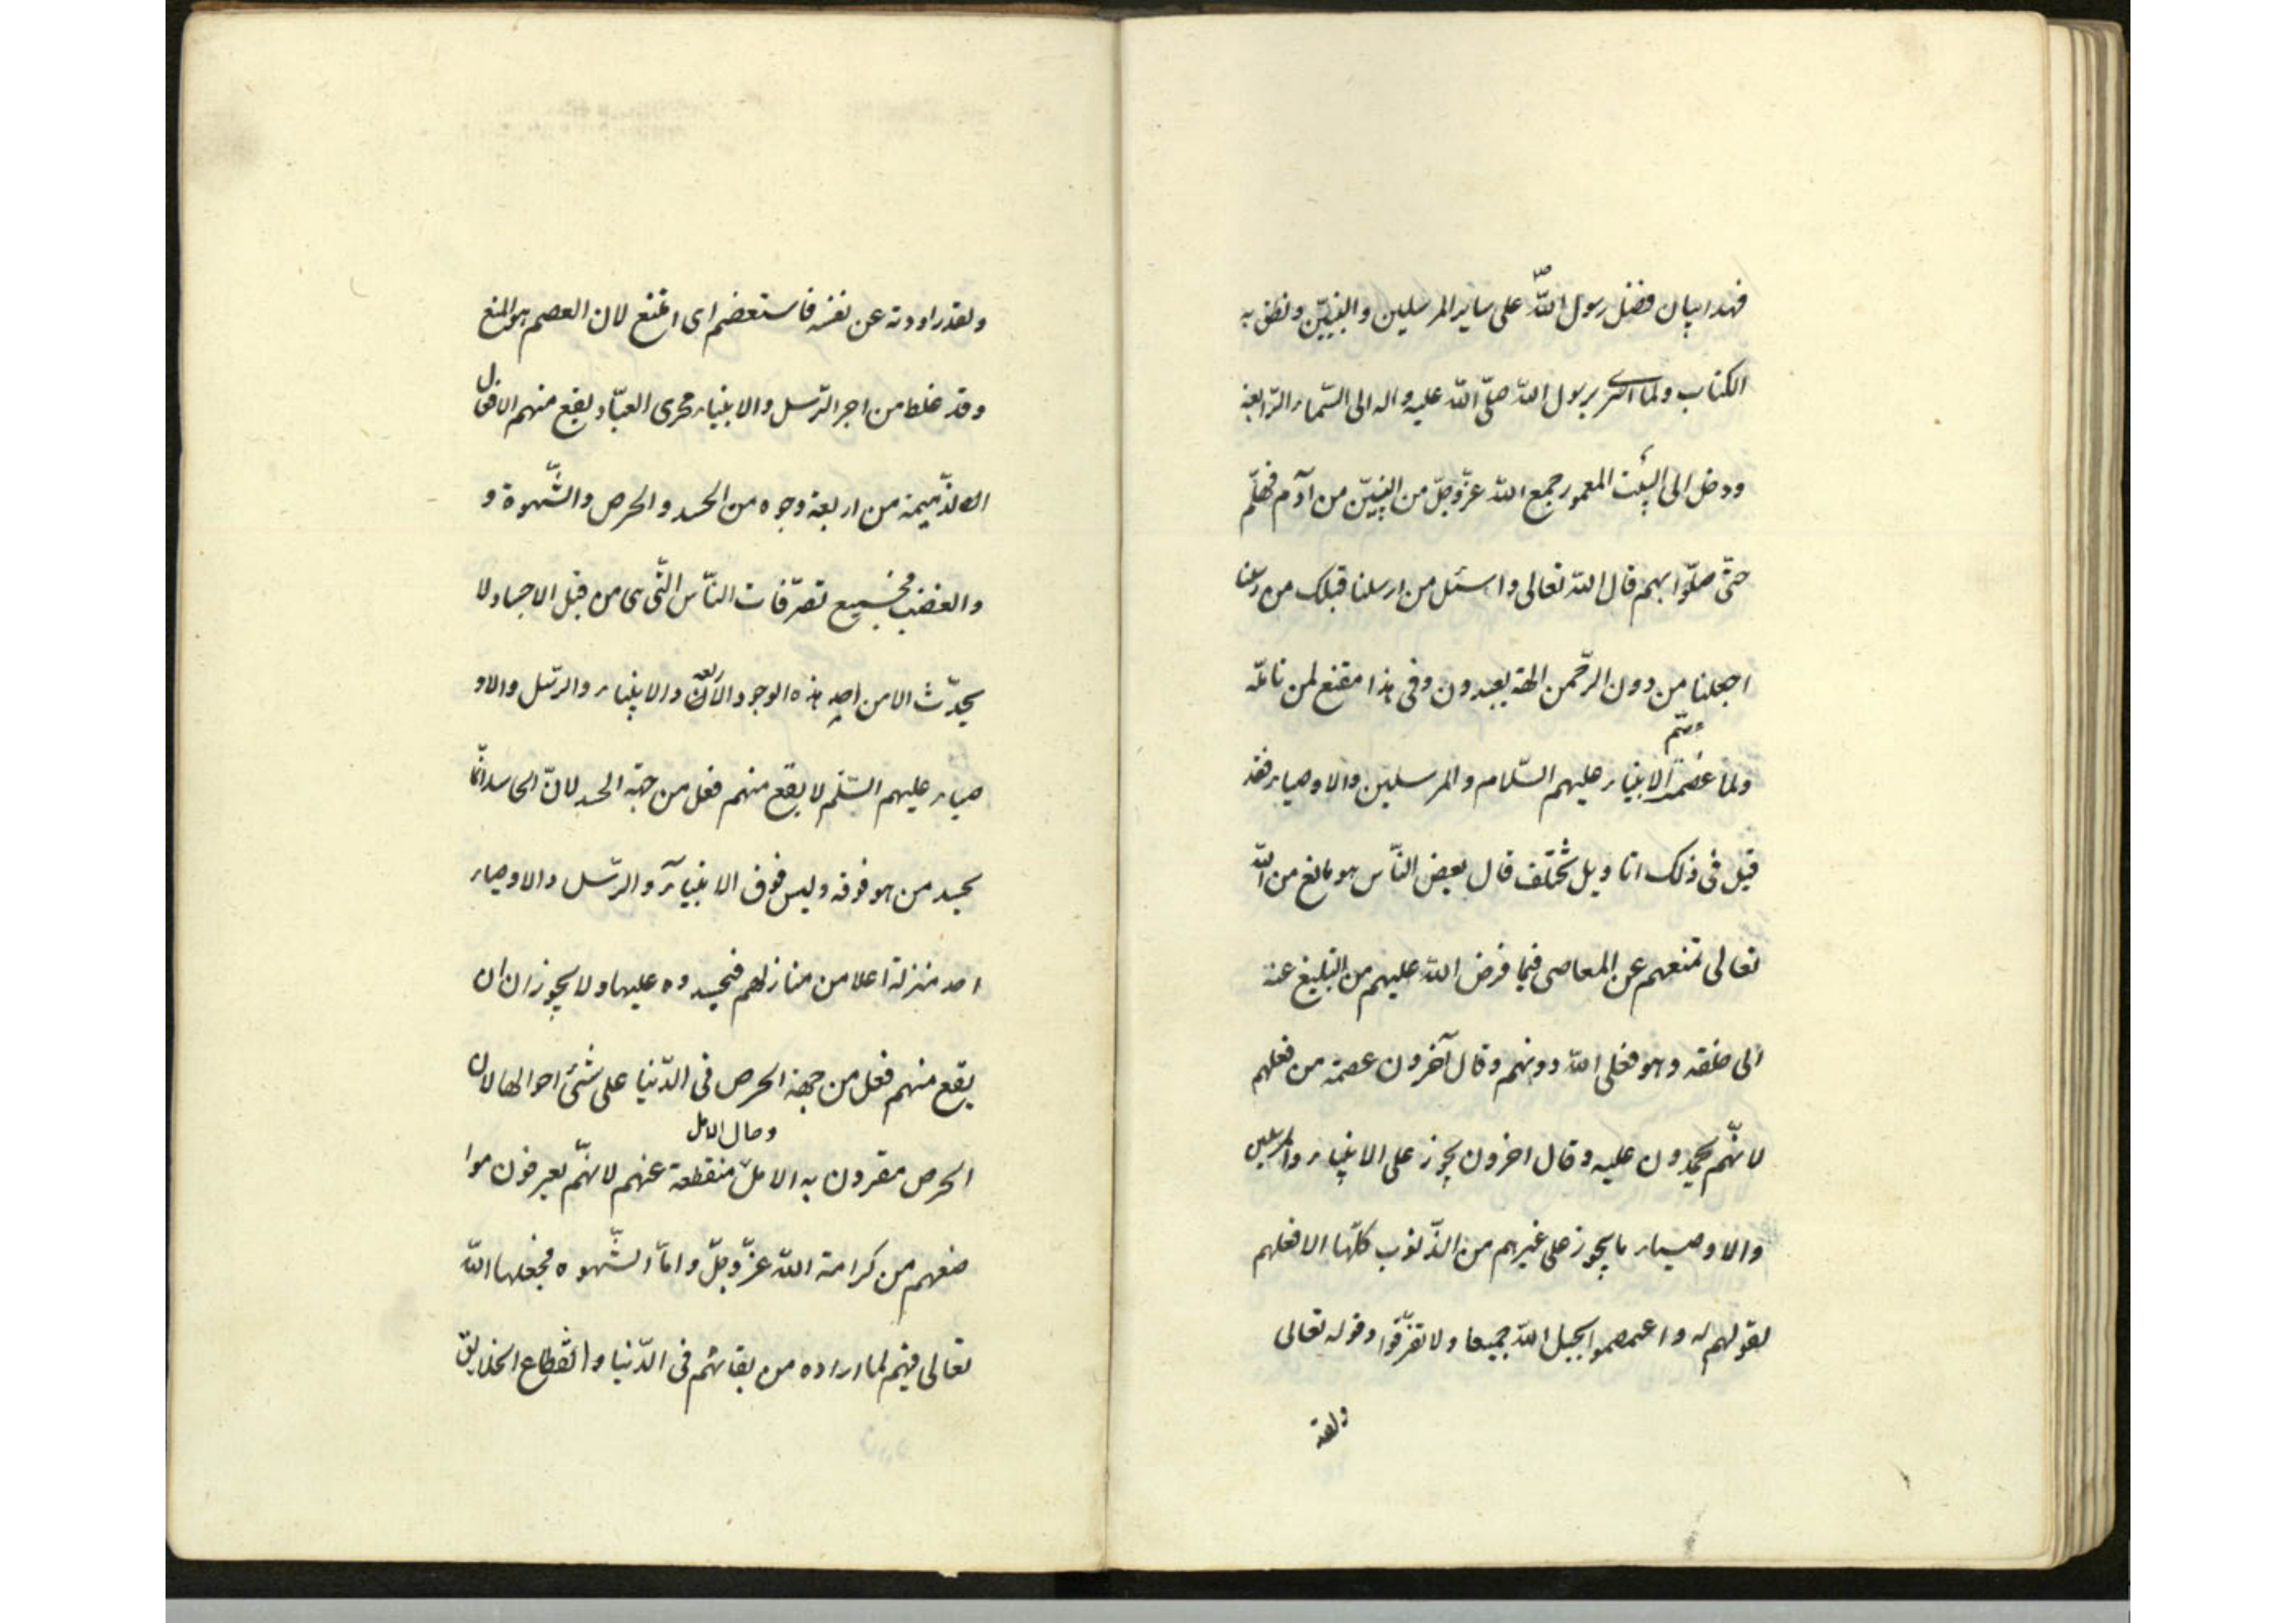 فهذا بيان فضل رسول اللّه ص على ساير المرسلين والنبيّين ونطق به
الكتاب ولمّا اسرى برسول اللّه صلّى اللّه عليه واله الى السّماء الرّابعة
ودخل الى البيت المعمور جمع اللّه عزّ وجلّ من النبيّن من آدم فهلّم
حتّى صلّوا بهم قال اللّه تعالى واسئل من ارسلنا قبلك من رسلنا
اجعلنا من دون الرّحمن الهة يعبدون وفى هذا مقنع لمن تامّله
ولما عصمة الانبياء عليهم السّلام والمرسلين والاوصياء فقد
قيل فى ذلك اقاويل مختلف قال بعض النّاس هو مانع من اللّه
تعالى تمنعهم عن المعاصى فيما فرض اللّه عليهم من التبليغ عنه
الى خلقه وهو فعلى اللّه دونهم وقال آخرون عصمة من فعلهم
لانّهم يحمدون عليه وقال اخرون يجوز على الانبياء والمرسلين
والاوصياء ما يجوز على غيرهم من الذّنوب كلّها الا فعلهم
لقولهم له واعتصموا بحبل اللّه جميعا ولا تفرّقوا وقوله تعالى
ولقد
ولقد راودته عن نفسه فاستعصم اى امتنع لان العصم هو المنع
وقد غلط من اجر الرّسل والانبياء مجرى العبّاد يقع منهم الافعال
الذّميمة من اربعة وجوه من الحسد والحرص والشّهوة و
والغضب فجميع تصرّفات النّاس الّتى هى من قبل الاجساد لا
يحدّث الا من احد هذه الوجود الاربعة والانبياء والرّسل والاو
صياء عليهم السّلم لا يقع منهم فعل من جهة الحسد لانّ الحاسد انّما
يحسد من هو فوقه وليس فوق الانبياء والرّسل والاوصياء
احد منزلة اعلا من منازلهم فيحسدوه عليها ولا يجوز ان ان
يقع منهم فعل من جهة الحرص فى الدّنيا على شئ احوالها لان
وحال الامل
الحرص مقرون به الامل منقطعة عنهم لانّهم يعرفون موا
ضعهم من كرامة اللّه عزّ وجلّ وامّا الشّهوه فجعلها اللّه
تعالى فيهم لما اراده من بقائهم فى الدّنيا وانقطاع الخلايق